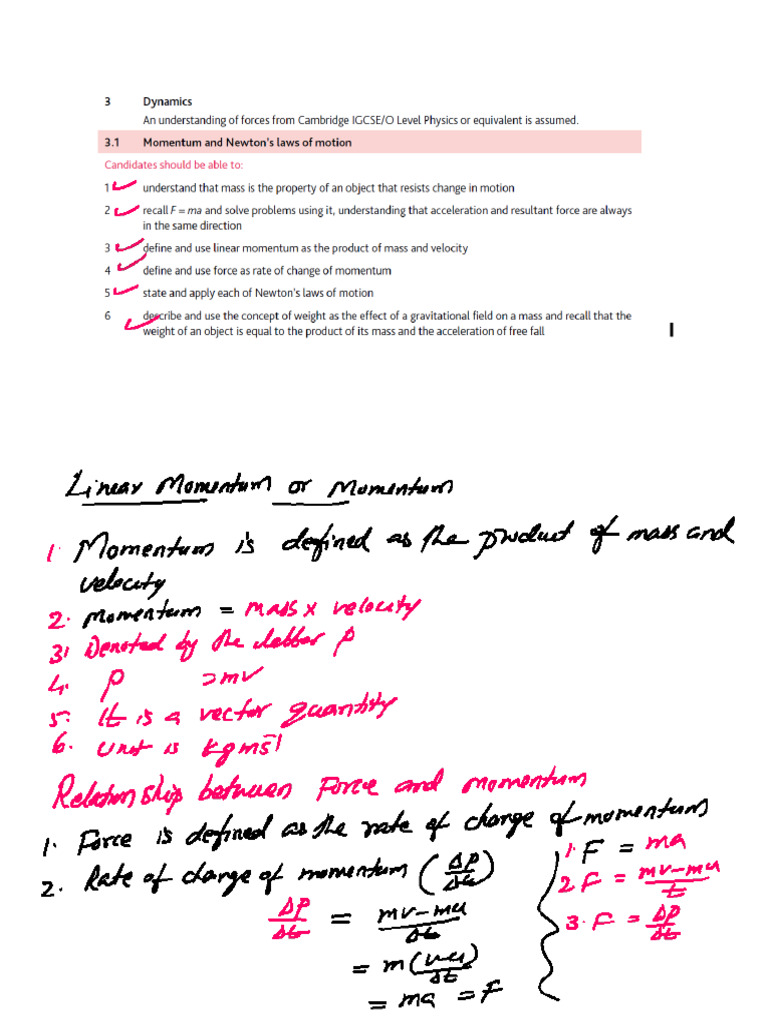 3 Dynamics
An understanding of forces from Cambridge IGCSE/O Level Physics or equivalent is assumed.
3.1 Momentum and Newton's laws of motion
Candidates should be able to:
1 understand that mass is the property of an object that resists change in motion
2 recall F = ma and solve problems using it, understanding that acceleration and resultant force are always
in the same direction
3 define and use linear momentum as the product of mass and velocity
4 define and use force as rate of change of momentum
5 state and apply each of Newton's laws of motion
6 describe and use the concept of weight as the effect of a gravitational field on a mass and recall that the
weight of an object is equal to the product of its mass and the acceleration of free fall
I
Linear Momentum or Momentum
1. Momentum is defined as the product of mass and
velocity
2. Momentum = mass x velocity
3. Denoted by the letter p
4. p = mv
5. It is a vector quantity
6. Unit is kgms⁻¹
Relationship between Force and momentum
1. Force is defined as the rate of change of momentum
2. Rate of change of momentum (ΔP/Δt)
ΔP/Δt = mv-mu/Δt
= m(v-u)/Δt
= ma = F
1. F = ma
2. F = mv-mu/t
3. F = ΔP/Δt